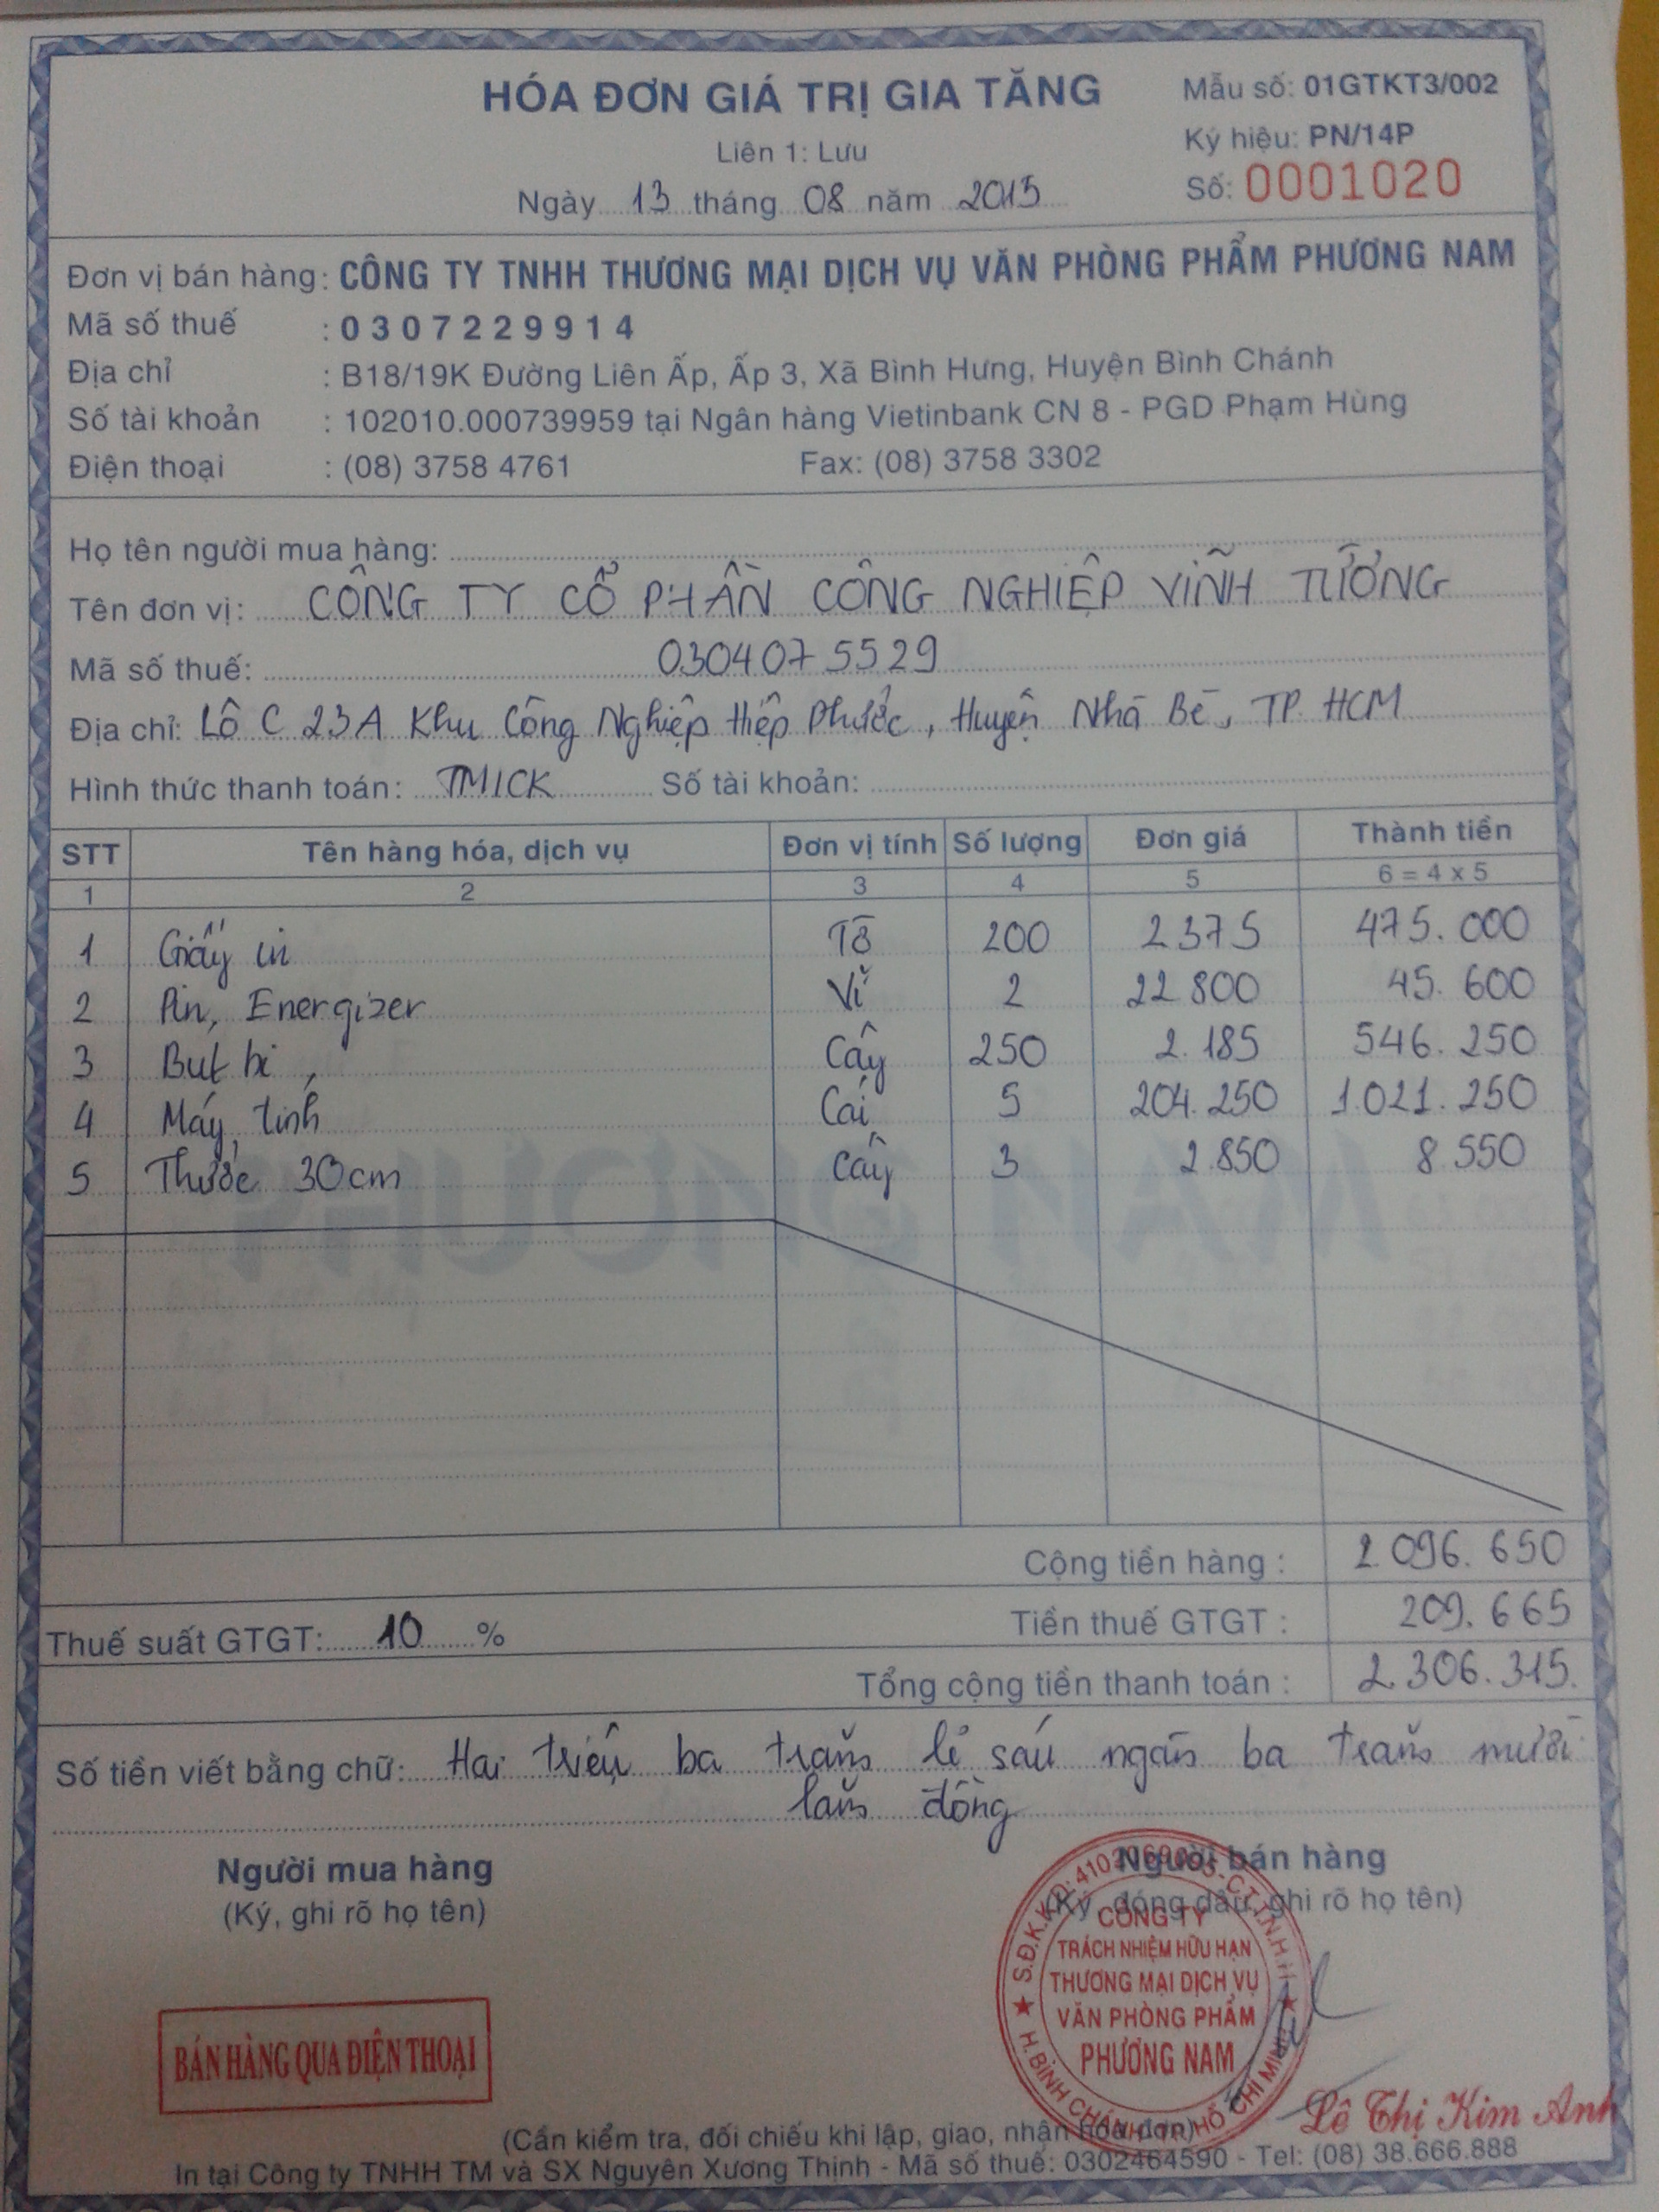 HÓA ĐƠN GIÁ TRỊ GIA TĂNG
Mẫu số: 01GTKT3/002
Liên 1: Lưu
Ký hiệu: PN/14P
Ngày 13 tháng 08 năm 2015
Số: 0001020
Đơn vị bán hàng: CÔNG TY TNHH THƯƠNG MẠI DỊCH VỤ VĂN PHÒNG PHẨM PHƯƠNG NAM
Mã số thuế : 0307229914
Địa chỉ : B18/19K Đường Liên Ấp, Ấp 3, Xã Bình Hưng, Huyện Bình Chánh
Số tài khoản : 102010.000739959 tại Ngân hàng Vietinbank CN 8 - PGD Phạm Hùng
Điện thoại : (08) 3758 4761 Fax: (08) 3758 3302
Họ tên người mua hàng:
Tên đơn vị: CÔNG TY CỔ PHẦN CÔNG NGHIỆP VĨNH TƯỜNG
Mã số thuế: 0304075529
Địa chỉ: Lô C 23A Khu Công Nghiệp Hiệp Phước, Huyện Nhà Bè, TP. HCM
Hình thức thanh toán: TM/CK Số tài khoản:
STT Tên hàng hóa, dịch vụ Đơn vị tính Số lượng Đơn giá Thành tiền
1 2 3 4 5 6 = 4 x 5
1 Giấy in Tờ 200 2375 475.000
2 Pin Energizer Vỉ 2 22.800 45.600
3 Bút bi Cây 250 2.185 546.250
4 Máy tính Cái 5 204.250 1.021.250
5 Thước 30cm Cây 3 2.850 8.550
Cộng tiền hàng : 2.096.650
Thuế suất GTGT: 10 % Tiền thuế GTGT : 209.665
Tổng cộng tiền thanh toán : 2.306.315.
Số tiền viết bằng chữ: Hai triệu ba trăm lẻ sáu ngàn ba trăm mười
lăm đồng
Người mua hàng
(Ký, ghi rõ họ tên)
Người bán hàng
(Ký, đóng dấu, ghi rõ họ tên)
CÔNG TY
TRÁCH NHIỆM HỮU HẠN
THƯƠNG MẠI DỊCH VỤ
VĂN PHÒNG PHẨM
PHƯƠNG NAM
H.BÌNH CHÁNH - TP. HỒ CHÍ MINH
BÁN HÀNG QUA ĐIỆN THOẠI
Lê Thị Kim Anh
(Cần kiểm tra, đối chiếu khi lập, giao, nhận hóa đơn)
In tại Công ty TNHH TM và SX Nguyên Xương Thịnh - Mã số thuế: 0302464590 - Tel: (08) 38.666.888